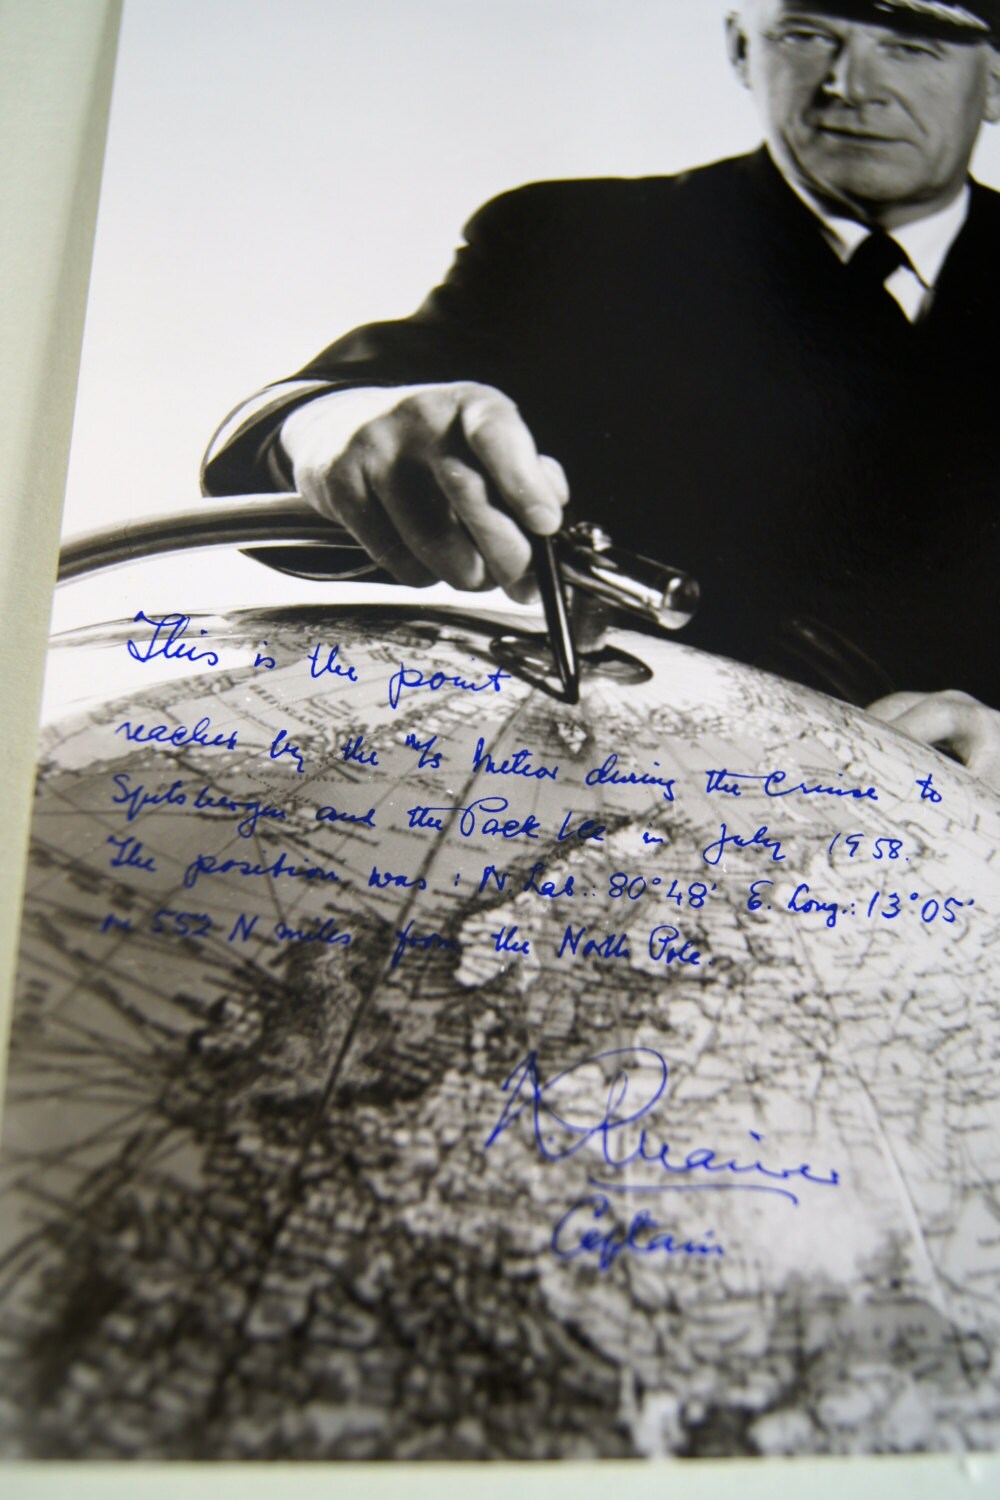 This is the point
reached by the M/S Meteor during the Cruise to
Spitsbergen and the Pack Ice in July 1958.
The position was : N. Lat.: 80°48' E. Long.: 13°05'
or 552 N miles from the North Pole.
Captain